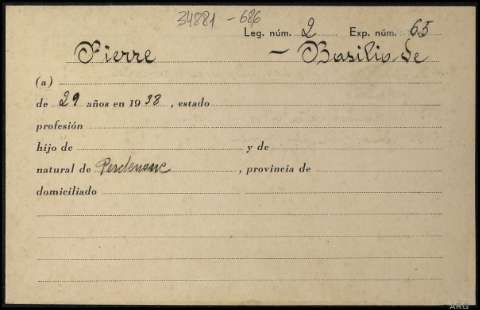 34881-686
Leg. núm. 2 Exp. núm. 65
Pierre – Basilio de
(a)
de 29 años en 1938, estado
profesión
hijo de y de
natural de , provincia de
domiciliado